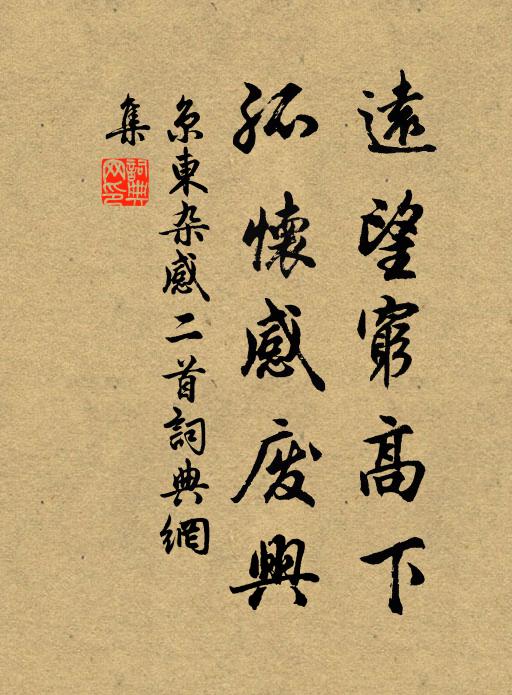 遠望窮高下
孤懷感废興
京東杂感二首詞典網
集
詞典
网印